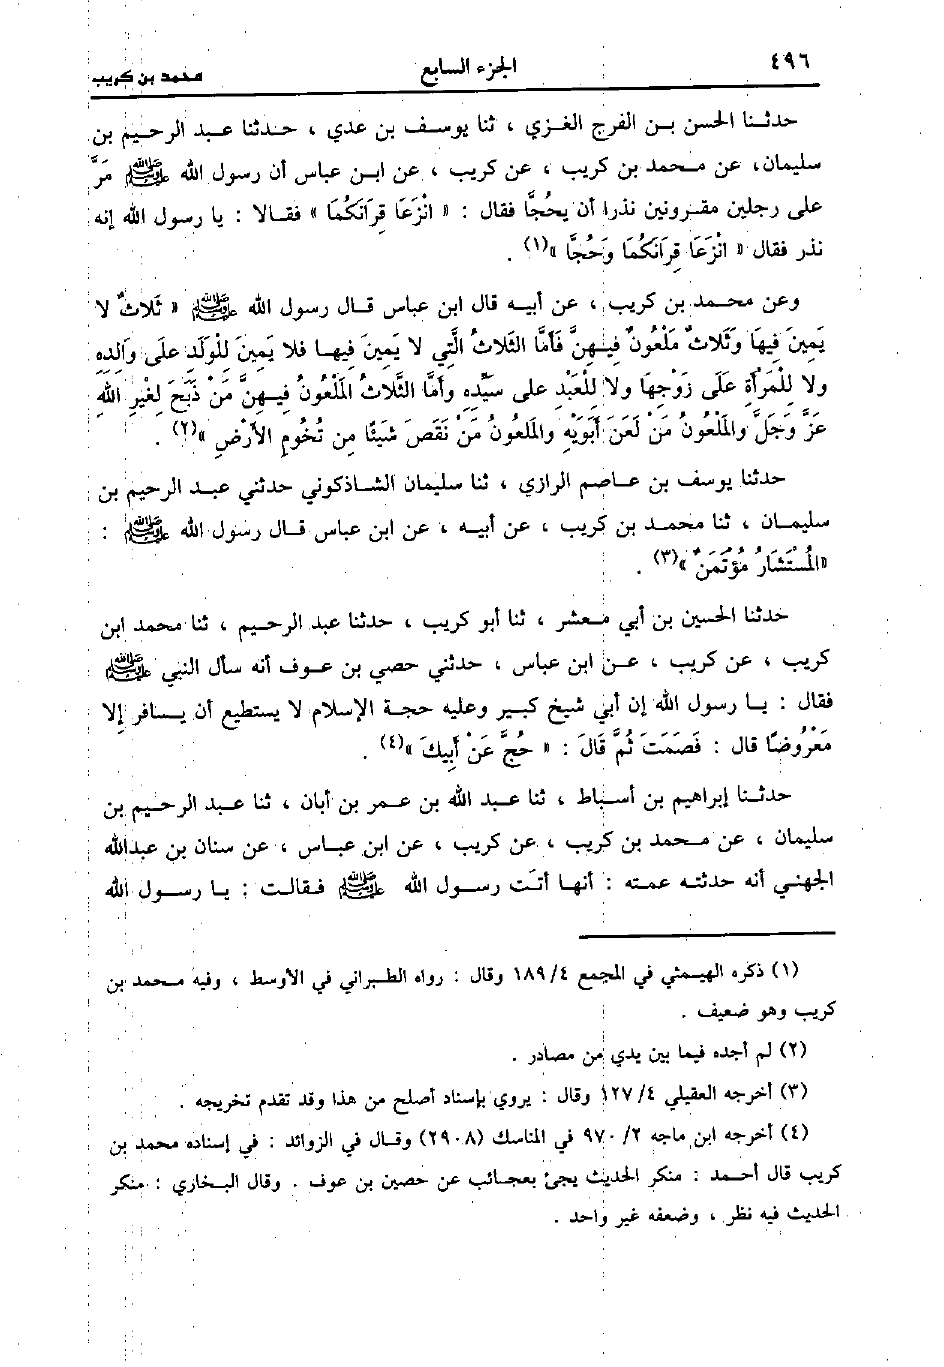 ٤٩٦ الجزء السابع محمد بن كريب
حدثنا الحسن بن الفرج الغزي ، ثنا يوسف بن عدي ، حدثنا عبد الرحيم بن
سليمان، عن محمد بن كريب ، عن كريب ، عن ابن عباس أن رسول الله ﷺ مَرَّ
على رجلين مقرونين نذرا أن يحُجَّا فقال : « انْزَعَا قِرَانَكُمَا » فقالا : يا رسول الله إنه
نذر فقال « انْزَعَا قِرَانَكُمَا وَحُجَّا »(١) .
وعن محمد بن كريب ، عن أبيه قال ابن عباس قال رسول الله ﷺ « ثَلاثٌ لا
يَمِينَ فِيهَا وَثَلاثٌ مَلْعُونٌ فيهِنَّ فَأَمَّا الثَلاثُ الَّتِي لا يَمِينَ فيها فلا يَمِينَ لِلْوَلَدِ عَلَى وَالِدِهِ
ولا لِلْمَرْأَةِ عَلَى زَوْجِهَا ولا لِلْعَبْدِ على سَيِّدِهِ وأَمَّا الثَّلاثُ المَلْعُونُ فيهِنَّ مَنْ ذَبَحَ لِغَيْرِ اللهِ
عَزَّ وَجَلَّ والمَلْعُونُ مَنْ لَعَنَ أَبَوَيْهِ والمَلعُونُ مَنْ نَقَصَ شَيئًا من تُخُومِ الأَرْضِ »(٢) .
حدثنا يوسف بن عاصم الرازي ، ثنا سليمان الشاذكوني حدثني عبد الرحيم بن
سليمان ، ثنا محمد بن كريب ، عن أبيه ، عن ابن عباس قال رسول الله ﷺ :
«المُسْتَشَارُ مُؤْتَمَنٌ »(٣) .
حدثنا الحسين بن أبي معشر ، ثنا أبو كريب ، حدثنا عبد الرحيم ، ثنا محمد ابن
كريب ، عن كريب ، عن ابن عباس ، حدثني حصي بن عوف أنه سأل النبي ﷺ
فقال : يا رسول الله إن أبي شيخ كبير وعليه حجة الإسلام لا يستطيع أن يسافر إلا
مَعْرُوضًا قال : فَصَمَتَ ثُمَّ قَالَ : « حُجَّ عَنْ أَبِيكَ »(٤) .
حدثنا إبراهيم بن أسباط ، ثنا عبد الله بن عمر بن أبان ، ثنا عبد الرحيم بن
سليمان ، عن محمد بن كريب ، عن كريب ، عن ابن عباس ، عن سنان بن عبدالله
الجهني أنه حدثته عمته : أنها أتت رسول الله ﷺ فقالت : يا رسول الله
(١) ذكره الهيثمي في المجمع ٤/ ١٨٩ وقال : رواه الطبراني في الأوسط ، وفيه محمد بن
كريب وهو ضعيف .
(٢) لم أجده فيما بين يدي من مصادر .
(٣) أخرجه العقيلي ٤/ ١٢٧ وقال : يروي بإسناد أصلح من هذا وقد تقدم تخريجه .
(٤) أخرجه ابن ماجه ٢/ ٩٧٠ في المناسك (٢٩٠٨) وقال في الزوائد : في إسناده محمد بن
كريب قال أحمد : منكر الحديث يجئ بعجائب عن حصين بن عوف . وقال البخاري : منكر
الحديث فيه نظر ، وضعفه غير واحد .